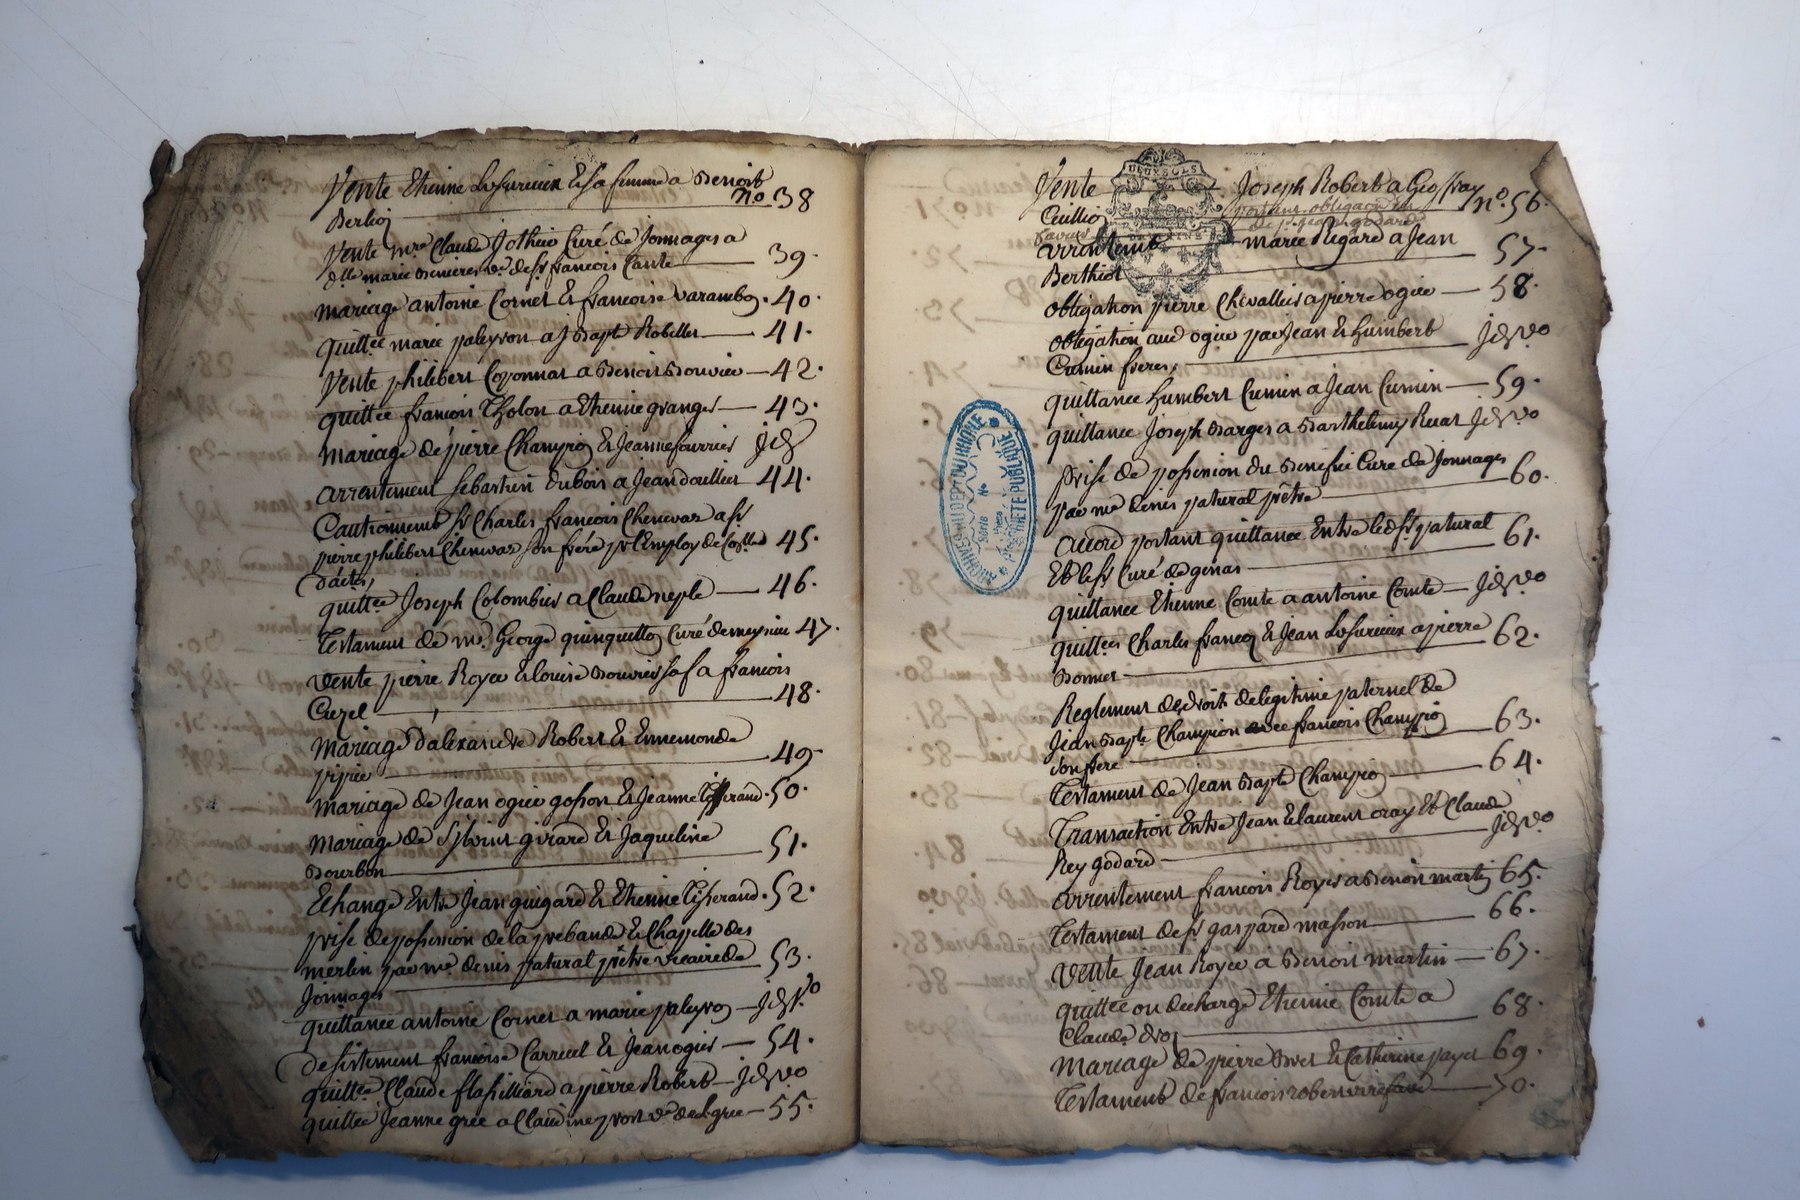 Vente Etienne Lesurieux & sa femme a Benoit
Berlioz no. 38
Vente mre Claude Jothieu Curé de Jonnages a
dlle marie ve de sr francois 39.
mariage antoine Cornet & francoise varambon. 40.
quittce marie paleyron a J Bapte Robelles 41.
Vente philibert Coponnat a Benoit Bouvier 42.
quittce francois Tholon a Etienne granges 43.
mariage de pierre Champion & Jeanne fourrier jd
arrentement sebastien dubois a Jean doullier 44.
Cautionnement sr Charles francois Chenevaz a sr
pierre philibert Chenevaz son frére pr l'Employ de
d'actes, 45.
quittce Joseph Colombier a Claude neple 46.
Testament de mre George quinquetton Curé de meysieu 47.
Vente pierre Royer & louise Bouvier sa f a francois
Curel 48.
Mariage d'alexandre Robert & Ennemonde
pipier 49
Mariage de Jean ogier gosson & Jeanne Tisserand. 50.
Mariage de girard & Jaqueline
Bourbon 51.
Echange Entre Jean guigard & Etienne Tisserand. 52.
prise de possession de la prebande & Chapelle des
merlin par mre denis patural prêtre vicaire de
Jonnages 53.
quittance antoine Cornet a marie paleyron jd vo
desistement francoise Carruel & Jean ogier 54.
quittce Claude flassilliard a pierre Robert jd vo
quittce Jeanne grée a Claudine yvort ve de grée 55.
Vente Joseph Robert a Geoffray
Cuillion no. 56.
portant obligaon en
faveur de sr. jean godard
DEUX SOLS
arrentemt marie Regard a Jean
Berthiot 57.
obligation pierre Chevallier a pierre ogier 58.
obligation aud ogier par Jean & humbert
Cumin freres, jd vo
quittance humbert Cumin a Jean Cumin 59.
quittance Joseph Barges a Barthelemy Ruat jd vo
prise de possession du Benefice Cure de Jonnages
par mre denis patural prêtre 60.
accord portant quittance Entre led sr patural
Et le sr Curé de genas 61.
quittance Etienne Comte a antoine Comte jd vo
quittces Charles francoz & Jean Lesurieux a pierre
Bonnet 62.
Reglement de droits de legitime paternel de
Jean Bapte Champion avec francois Champion
son frere 63.
Testament de Jean Bapte Champion 64.
Transaction Entre Jean & laurent oray Et Claude
Rey godard jd vo
arrentement francois Royer a Benoit martin 65.
Testament de sr gaspard masson 66.
Vente Jean Royer a Benoit martin 67.
quittce ou decharge Etienne Comte a
Claude 68.
Mariage de pierre & Catherine payet 69.
Testament de francois robert 70.
ARCHIVES DU DEPT DU RHONE
Série
No
PROPRIÉTÉ PUBLIQUE